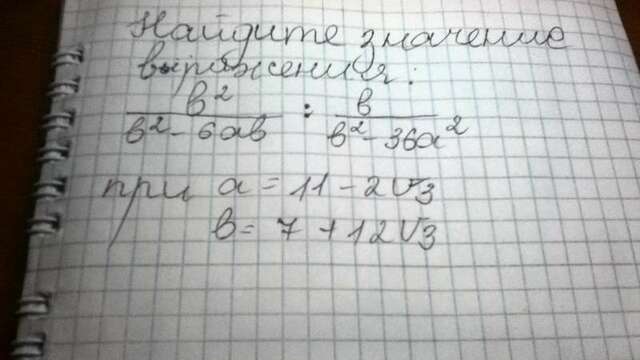 Найдите значение
выражения:
в²/(в² - 6ав) : в/(в² - 36а²)
при а = 11 - 2√3
в = 7 + 12√3